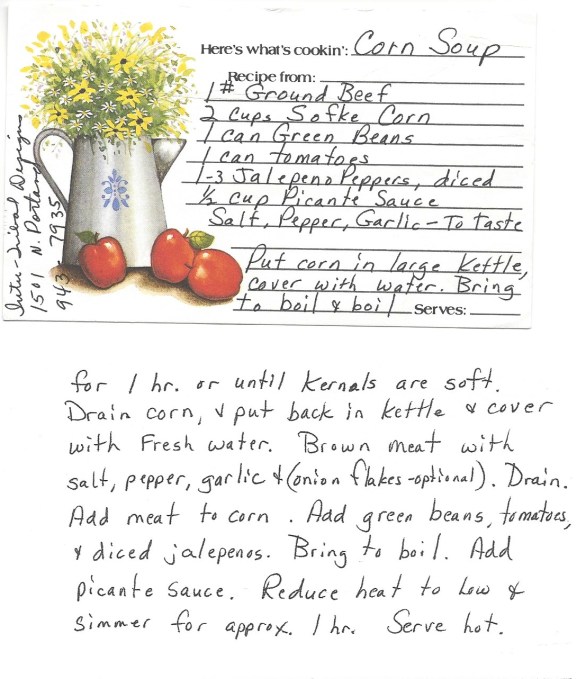 Here's what's cookin': Corn Soup
Recipe from:
1# Ground Beef
2 cups Sofke Corn
1 can Green Beans
1 can tomatoes
1-3 Jalepeno Peppers, diced
1/2 cup Picante Sauce
Salt, Pepper, Garlic - To taste
Put corn in large kettle,
cover with water. Bring
to boil & boil Serves:
Inter-Tribal Designs
1501 N. Portland
943-7935
for 1 hr. or until kernals are soft.
Drain corn, & put back in kettle & cover
with Fresh water. Brown meat with
salt, pepper, garlic & (onion flakes-optional). Drain.
Add meat to corn. Add green beans, tomatoes,
& diced jalepenos. Bring to boil. Add
picante sauce. Reduce heat to low &
simmer for approx. 1 hr. Serve hot.